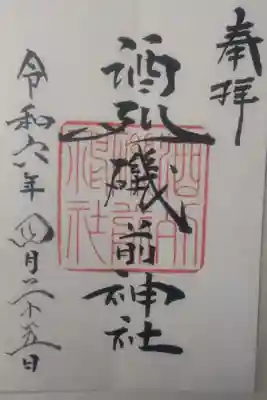 奉拝
酒列磯前神社
令和六年四月二十五日